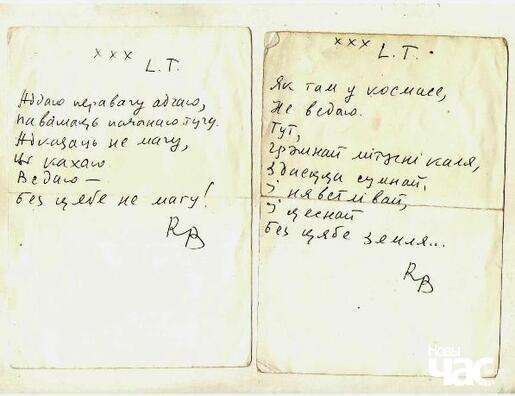 x x x
L.T.
Аддаю перавагу адчаю,
паважаць пачынаю тугу.
Адказаць не магу,
Ці кахаю.
Ведаю —
Без цябе не магу!
RB
x x x
L.T.
Як там у космасе,
Не ведаю.
Тут,
мітусні каля,
здаецца сумнай,
і няветлівай,
і цеснай
без цябе зямля...
RB
Новы
Час